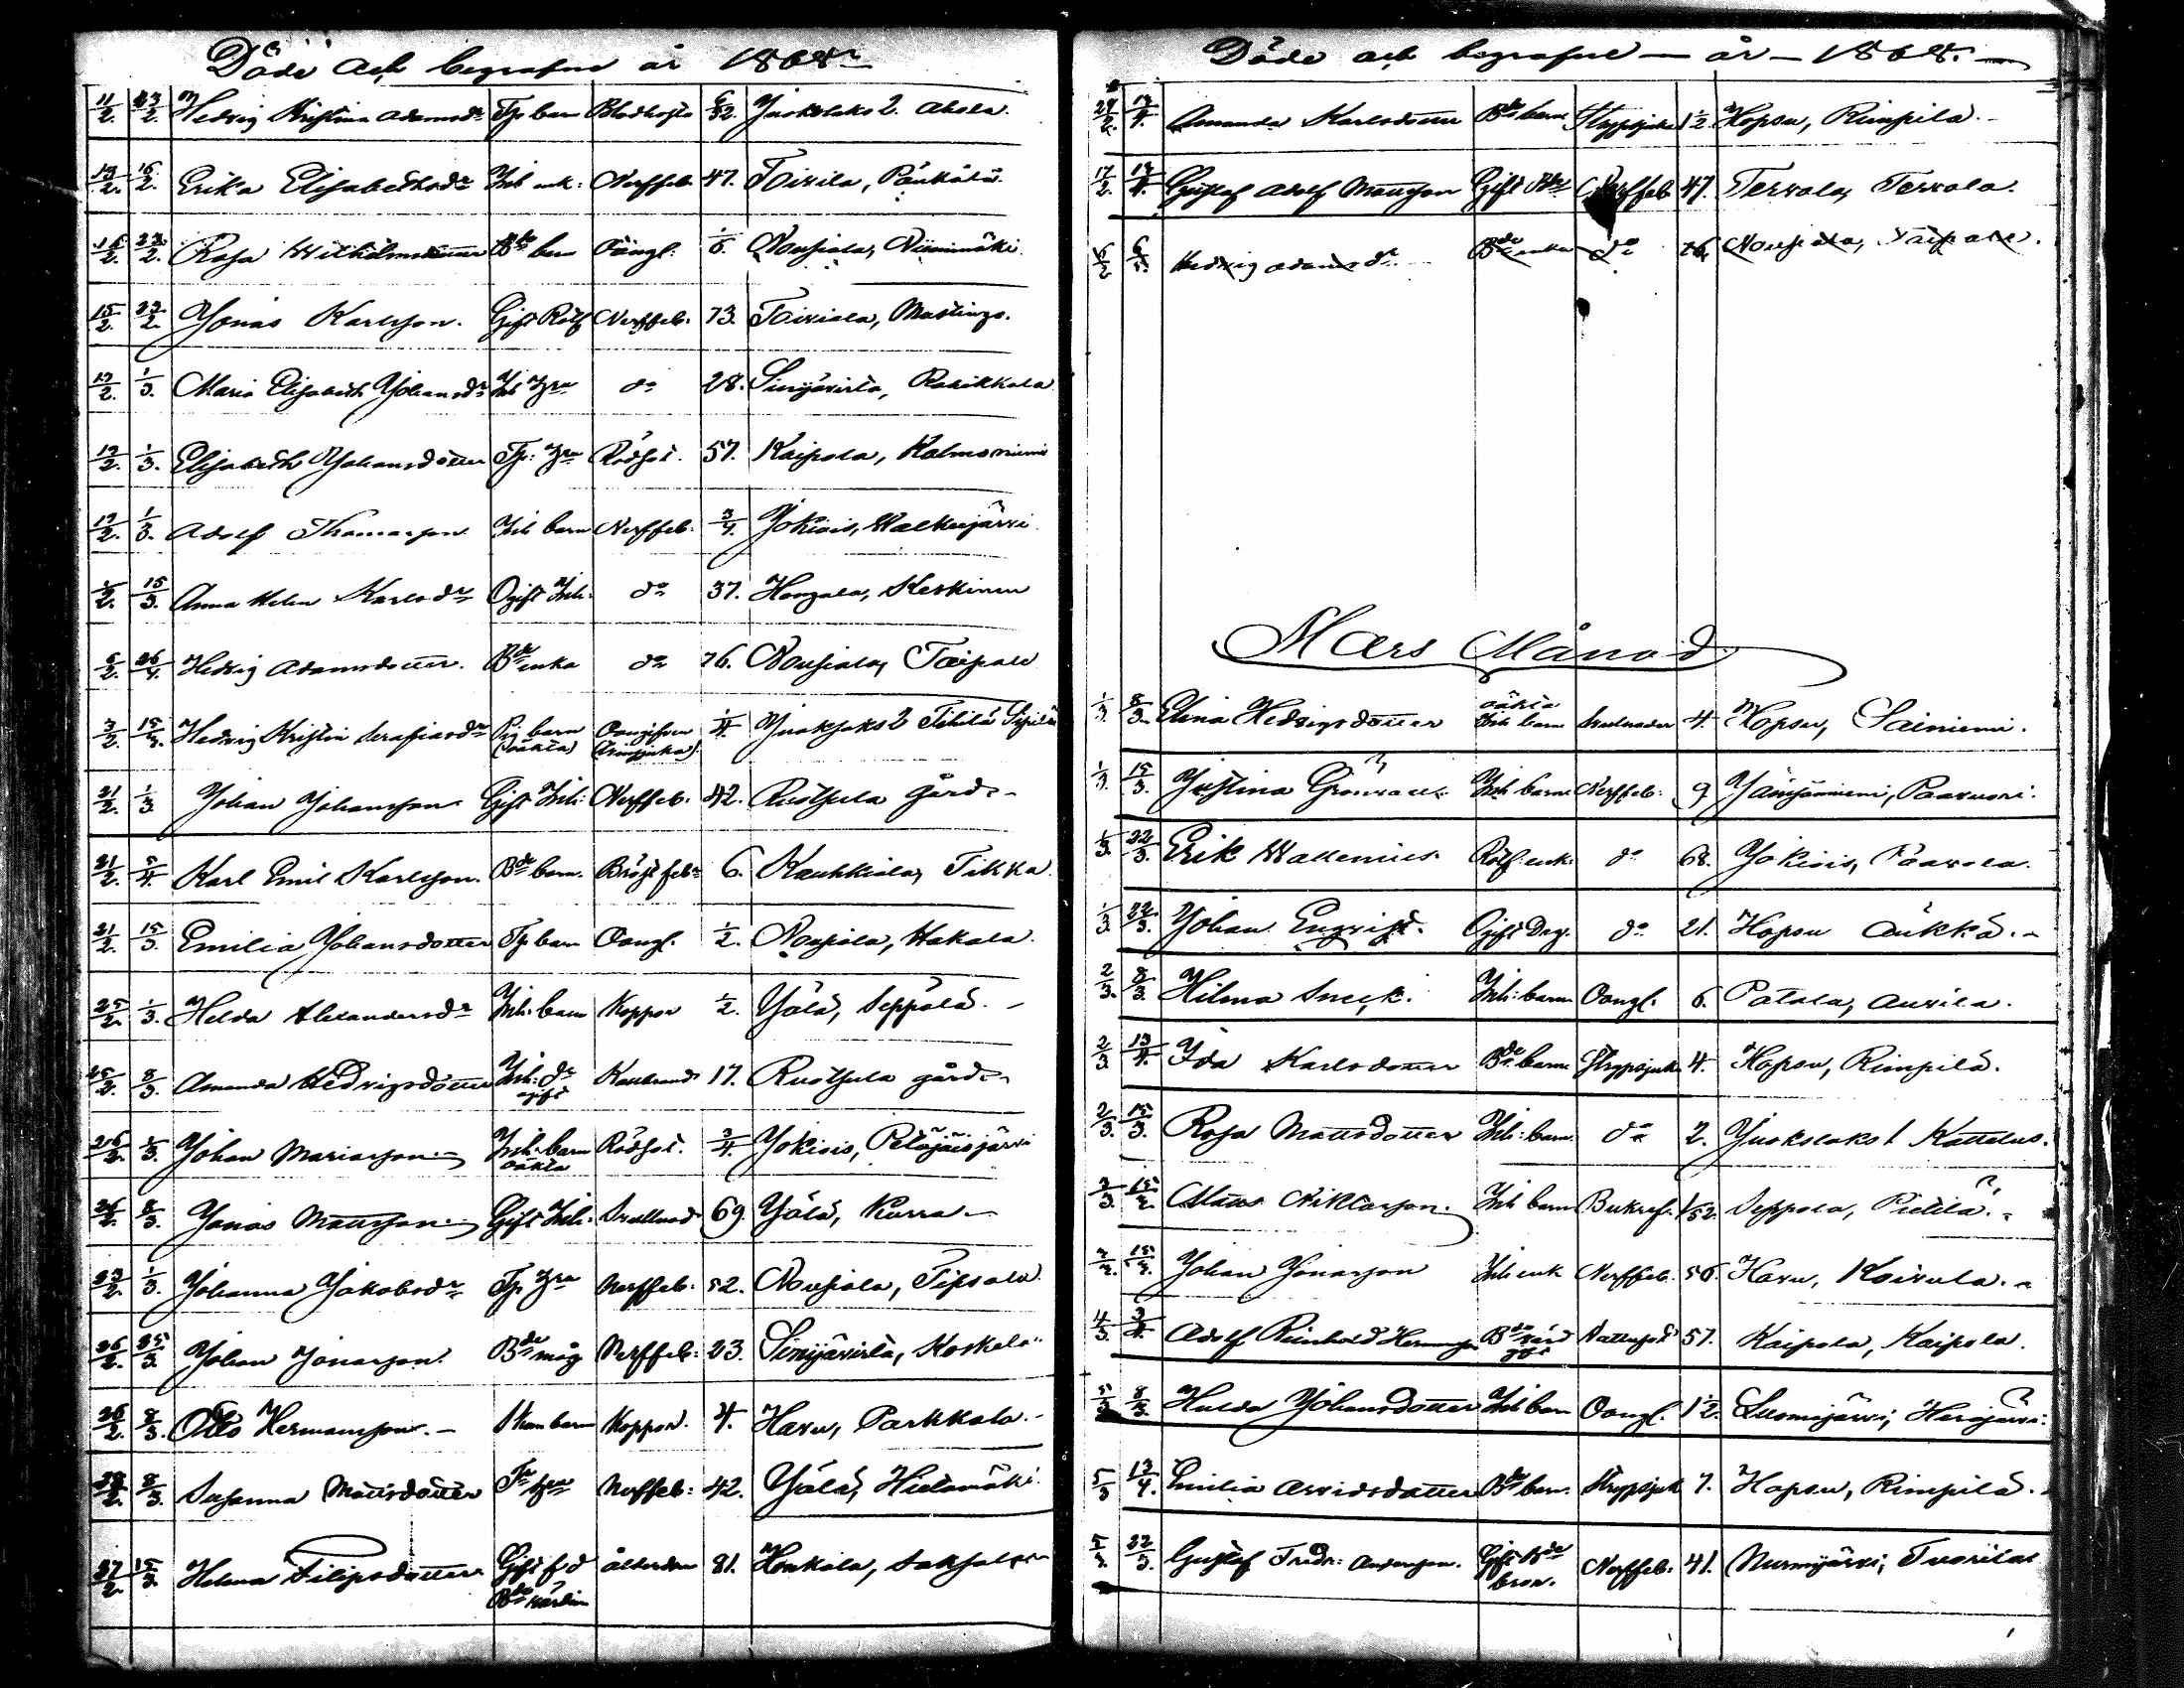 Döde och begrafne år 1868
11/2. 23/2. Hedvig Kristina Adamsdr Tp barn Blodhosta 6/52. Juokslaks 2. Ahola.
13/2. 16/2. Erika Elisabethsdr Inh enk: Nerffeb. 47. Toivila, Pänkälä.
16/2. 23/2. Rosa Wilhelmsdotter Bde barn Oangl: 1/6. Nousiala, Niinimäki
15/2. 23/2. Jonas Karlsson. Gift Rotf Nerffeb. 73. Toiviala, Mastings.
17/2. 1/3. Maria Elisabeth Johansdr Inh hru do 28. Sinijävirta, Rahikkala
17/2. 1/3. Elisabeth Johansdotter Tp: hru Rödsot. 57. Kaipola, Kalmoniemi
17/2. 1/3. Adolf Thomasson Inh barn Nerffeb. 3/4. Jokiois, Walkeejärvi.
15/3. Anna Helen Karlsdr Ogift Inh: do 37. Hongola, Keskinen
5/2. 26/4. Hedvig Adamsdotter. Bde enka do 76. Nousiala, Taipale
3/2. 15/3. Hedvig Kristin Serafiasdr Pig barn (oäkta) Oangifven 1/4. Juoksjaks 2
21/2. 1/3 Johan Johansson Gift Inh: Nerffeb. 42. Ruolhula gård.
21/2. 5/4. Karl Emil Karlsson. Bde barn. Bröstfeb. 6. Kauhkiala, Tikka.
21/2. 15/3. Emilia Johansdotter Tp barn Oangl. 1/2. Nousiala, Hakala.
25/2. 1/3. Helda Alexandersdr Inh: barn Koppor 1/2. Jälä, Seppälä.
25/2. 8/3. Amanda Hedvigsdotter Inh: dr ogift Kallbrand 17. Ruolhula gård.
26/2. 8/3. Johan Mariasson Inh: barn oäkta Rödsot. 3/4. Jokiois, Petäjäisjärvi
26/2. 8/3. Jonas Mattsson Gift Inh: Svullnad 69. Jälä, Korra
23/2. 1/3. Johanna Jakobsdr Tp hru Nerffeb: 52. Nousiala, Tipsala
26/2. 25/3 Johan Jonasson. Bde måg Nerffeb: 23. Sinijävirta, Koskela
26/2. 8/3. Otto Hermansson. barn Koppor. 4. Havu, Parkkola.
28/2. 8/3. Susanna Mattsdotter Tp hru Nerffeb: 42. Jälä, Hietamäki
27/2. 15/3. Helena Filipsdotter Gift f.d Bde värdin ålderdom 81. Honkola,
Döde och begrafne år 1868.
Amanda Karlsdotter Bde barn Strypsjuka 1 1/2. Hopsu, Rimpilä.
17/2. Gustaf Adolf Mattsson Gift Bde Nerffeb 47. Tervala, Tervala.
5/2 Hedvig Adamsdr Bde enka do 76 Nousiala, Taipale.
Mars Månad
1/3. 8/3. Elina Hedvigsdotter oäkta Inh barn Svullnader 4. Hopsu, Sainiemi.
1/3. 15/3. Justina Grönroos Inh barn Nerffeb: 9 Jämsänniemi, Paavuori.
1/3. 22/3. Erik Wallenius Rotf: enk: do 68. Jokiois, Paavola.
1/3 22/3. Johan Enqvist. Ogift Drg. do 21. Hopsu Aukkä.
2/3. 8/3. Hilma Sneck. Inh: barn Oangl. 6. Patala, Auvila.
2/3 13/4. Ida Karlsdotter Bde barn Strypsjuk 4. Hopsu, Rimpilä.
2/3. 15/3. Rosa Mattsdotter Inh: barn. do 2. Juokslaks 1 Kattelus.
3/3. 15/3. Niklasson. Inh barn 1/52. Seppola, Pietilä.
3/3. 15/3. Johan Jonasson Inh enk Nerffeb. 56. Havu, Koivula.
4/3. 3/4. Adolf Reinhold Bde värd gift Vattusot 57. Kaipola, Kaipola.
5/3 8/3. Hulda Johansdotter Inh barn Oangl. 1 1/2. Luomijärvi; Herajärvi.
5/3 13/4. Emilia Arvidsdotter Bde barn. Strypsjuk 7. Hopsu, Rimpilä.
5/3. 22/3. Gustaf Fredr: Andersson. Gift Bde bror. Nerffeb: 41. Nurmijärvi; Tuorila